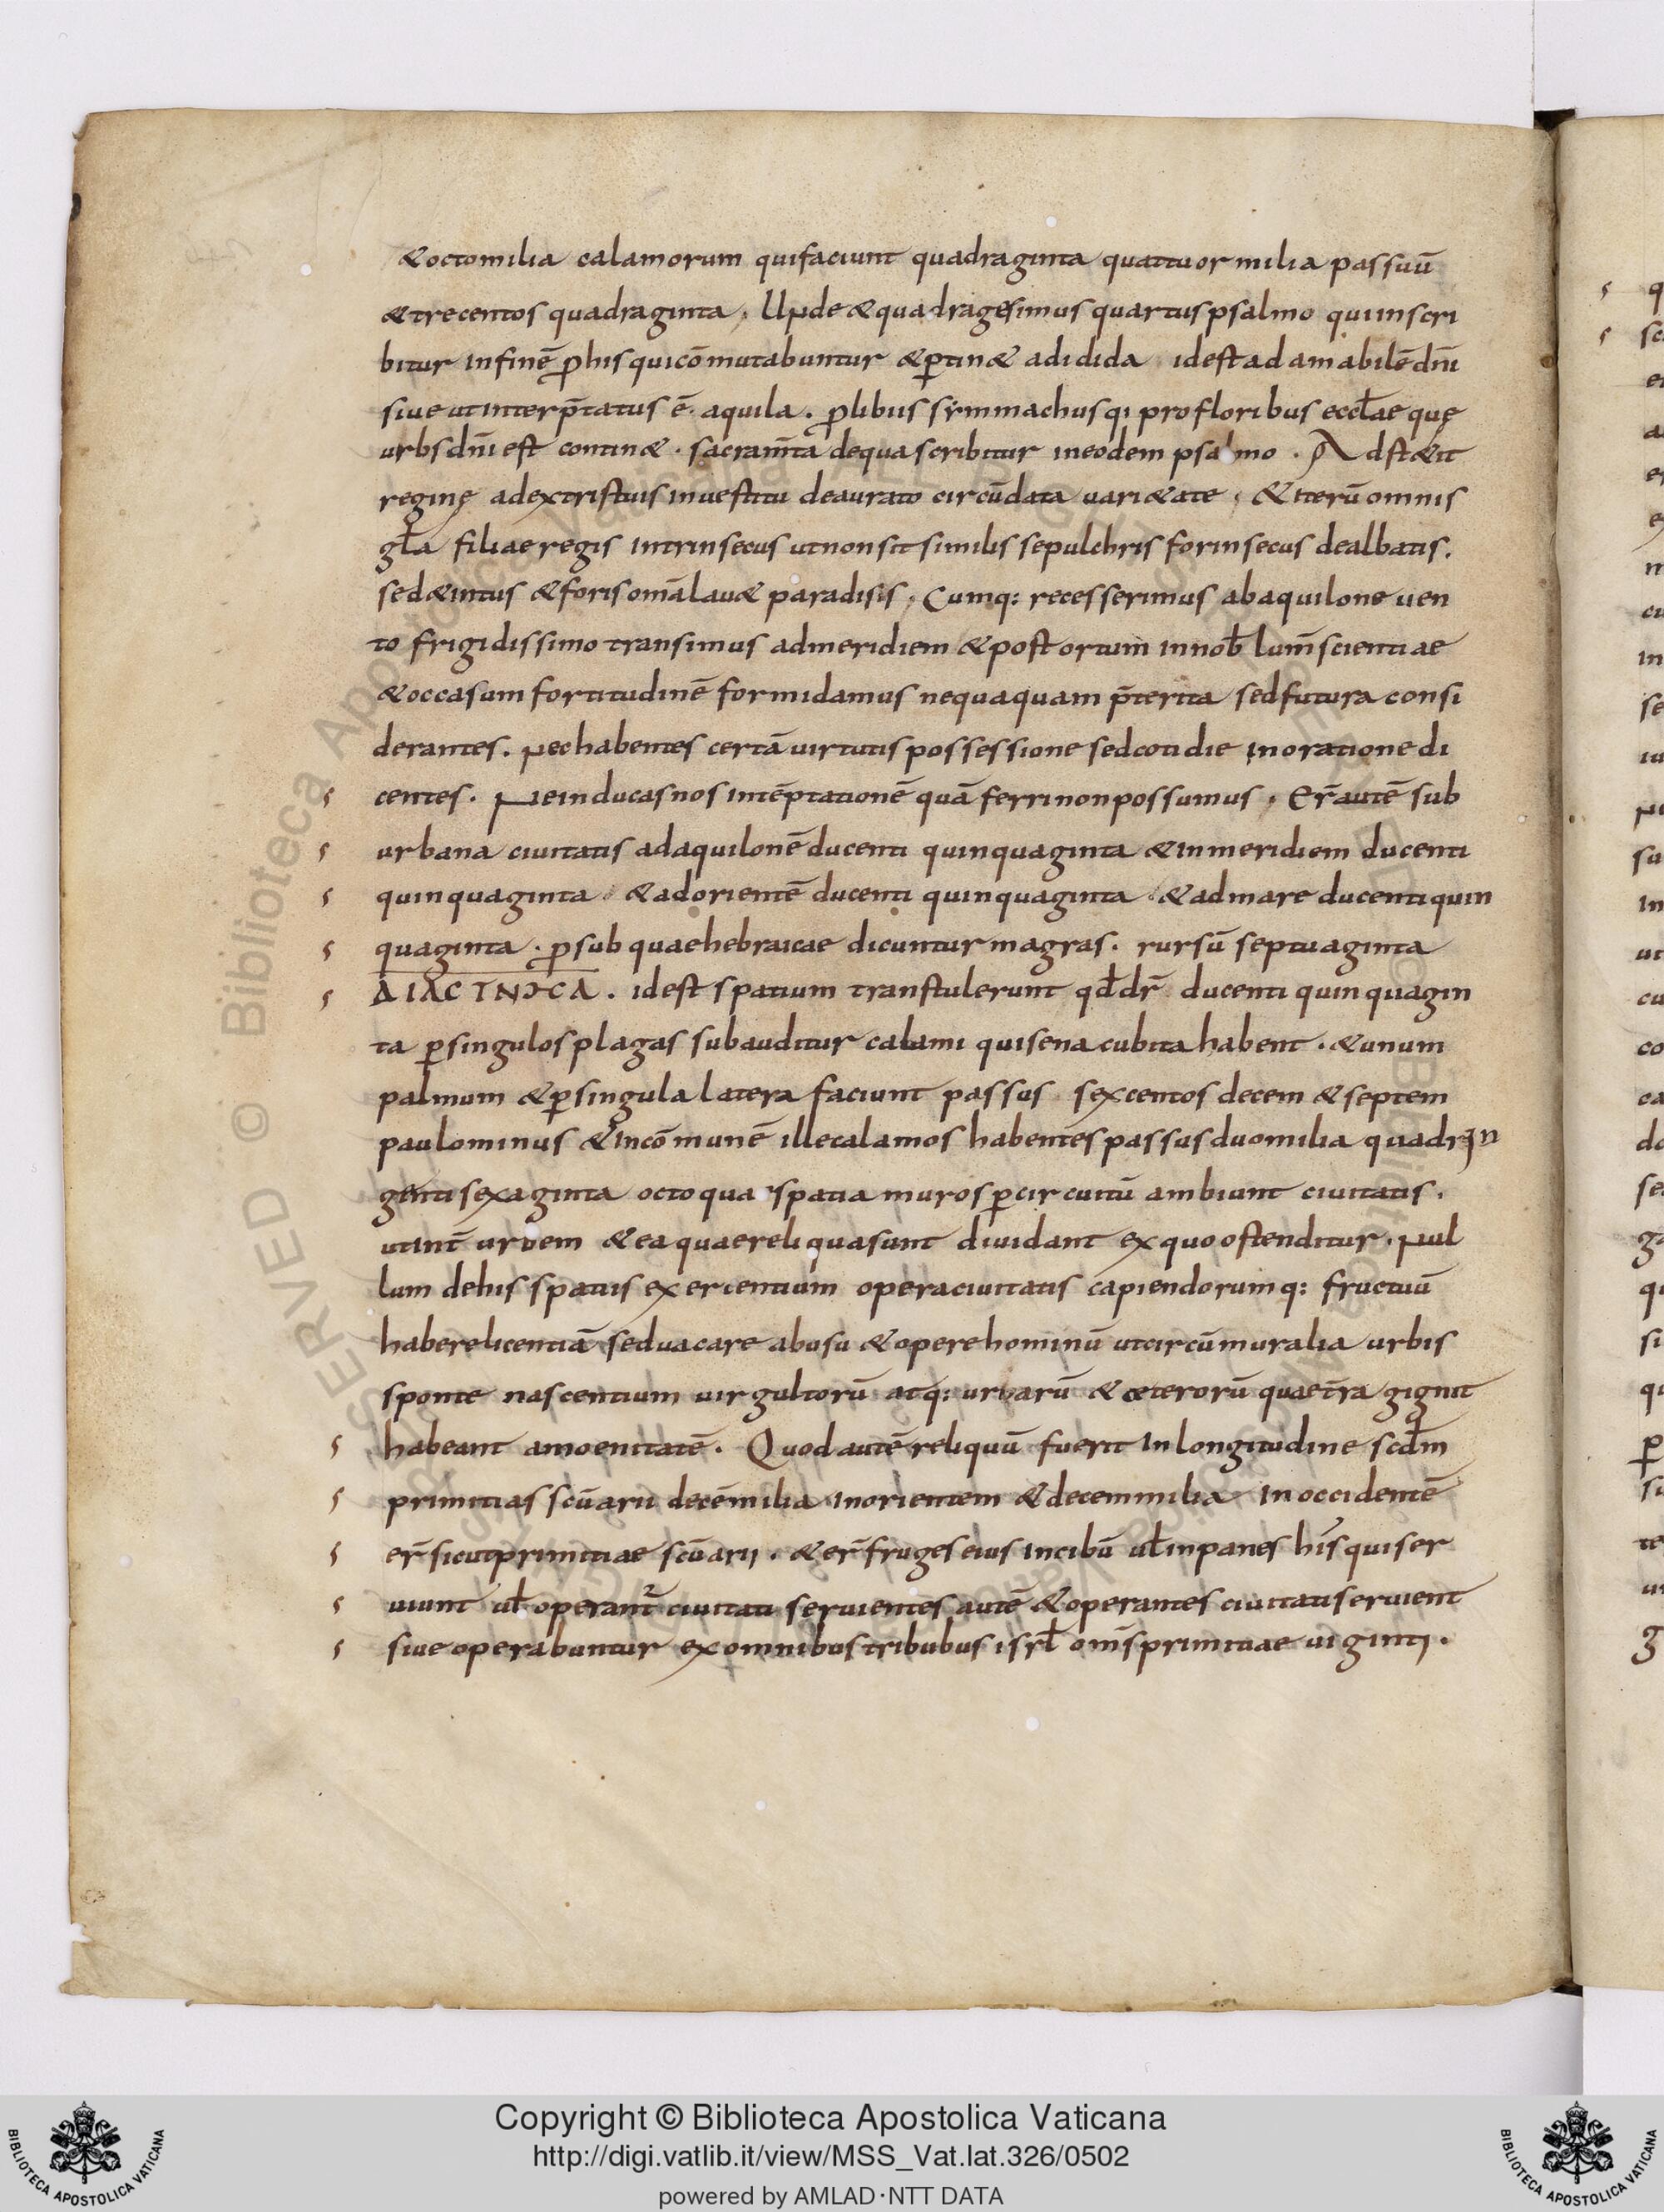 &octomilia calamorum quifaciunt quadraginta quattuor milia passuū
&trecentos quadraginta, Unde &quadragesimus quartus psalmo qui inscri
bitur infinē ꝓhis quicōmutabuntur &ꝑtin& adidida idest ad amabilē dn̄i
siue ut interp̄tatus ē aquila. ꝓlibiis symmachusqi pro floribus eccłae quę
urbs dn̄i est contin&. sacram̄ta dequa scribitur ineodem psalmo. Adst&it
reginę adextristuis inuestitu deaurato circūdata uari&ate, &iterū omnis
gła filiae regis intrinsecus utnonsit similis sepulchris forinsecus dealbatis.
sed&intus &foris om̄a lau& paradisis, Cumq: recesserimus abaquilone uen
to frigidissimo transimus admeridiem &post ortum innob̄ lum̄ scientiae
&occasum fortitudinē formidamus nequaquam p̄terita sed futura consi
derantes. nec habentes certā uirtutis possessione sed cotidie inoratione di
centes. Neinducas nos intēptationē quā ferri non possumus, Er̄ autē sub
urbana ciuitatis adaquilonē ducenti quinquaginta &inmeridiem ducenti
quinquaginta &adorientē ducenti quinquaginta &admare ducenti quin
quaginta. ꝓsub quae hebraicae dicuntur magras. rursū septuaginta
ΔΙΑCΤΝΙCΑ. idest spatium transtulerunt qđ dr̄ ducenti quinquagin
ta ꝑsingulos plagas subauditur calami qui sena cubita habent. &unum
palmum &ꝑsingula latera faciunt passus sexcentos decem &septem
paulominus &incōmunē ille calamos habentes passus duomilia quadrin
genti sexaginta octo qua spatia muros ꝑcircuitū ambiunt ciuitatis.
utint̄ urbem &ea quae reliqua sunt diuidant ex quo ostenditur. nul
lum dehis spatiis exercentium opera ciuitatis capiendorumq: fructuū
habere licentiā sed uacare abusu &opere hominū utcircūmuralia urbis
sponte nascentium uirgultorū atq: urbarū &cęterorū quae tr̄a gignit
habeant amoenitatē. Quod autē reliquū fuerit inlongitudine scđm
primitias scūarii decēmilia inorientem &decemmilia inoccidentē
er̄ sicut primitiae scūarii. &er̄ fruges eius incibū uł inpanes his qui ser
uiunt uł operant̄ ciuitati seruientes autē &operantes ciuitati seruient
siue operabuntur ex omnibus tribubus isrł om̄s primitiae uiginti.
Copyright © Biblioteca Apostolica Vaticana
http://digi.vatlib.it/view/MSS_Vat.lat.326/0502
powered by AMLAD·NTT DATA
BIBLIOTECA APOSTOLICA VATICANA
BIBLIOTECA APOSTOLICA VATICANA